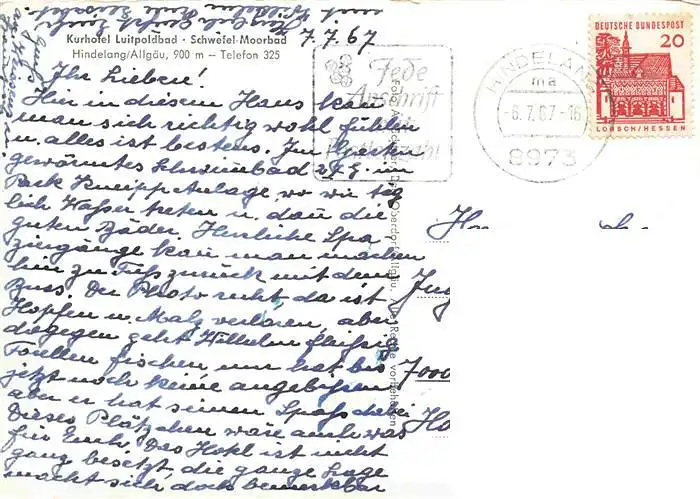 Kurhotel Luitpoldbad · Schwefel-Moorbad
Hindelang/Allgäu, 900 m — Telefon 325
7.7.67
Ihr Lieben!
Hier in diesem Haus kan
man sich richtig wohl fühlen
u. alles ist bestens. Im Garten
gewärmtes Schwimbad 24 G. im
Park Kneipp Anlage, wo wir täg
lich Wasser treten u. dan die
guten Bäder. Herrliche Spa
ziergänge kan man machen
hin zu Fuß zurück mit dem
Buss. Der Photo sucht da ist
Hopfen u. Malz verloren, aber
dagegen geht Wilhelm fleissig
Forellen fischen nur hat bis
jetzt noch keine angebissen
aber er hat seinen Spaß dabei
Dieses Plätzchen wäre auch was
für Euch. Das Hotel ist nicht
ganz besetzt, die ganze Lage
macht sich doch bemerkbar
DEUTSCHE BUNDESPOST
20
LORSCH/HESSEN
Jede
Anschrift
HINDELANG
ma
-6.7.67-16
8973